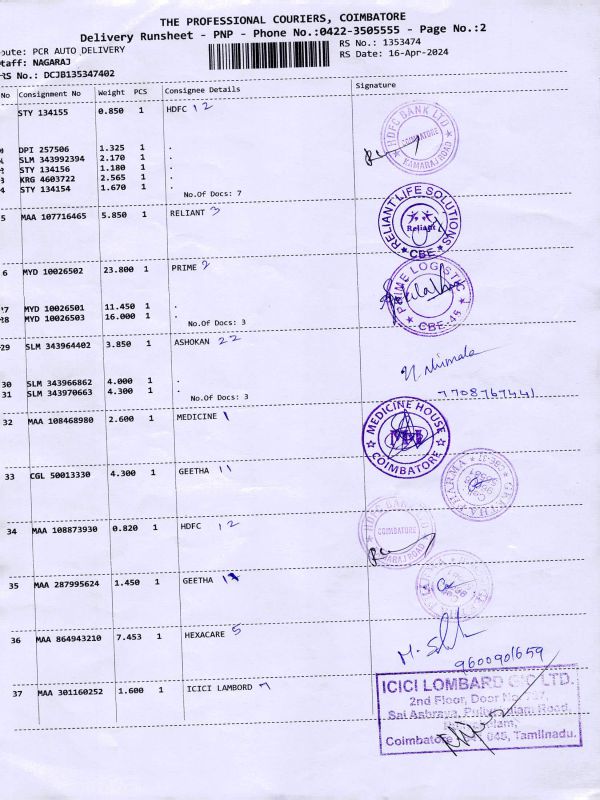 THE PROFESSIONAL COURIERS, COIMBATORE
Delivery Runsheet - PNP - Phone No.:0422-3505555 - Page No.:2
oute: PCR AUTO DELIVERY
RS No.: 1353474
taff: NAGARAJ
RS Date: 16-Apr-2024
RS No.: DCJB135347402
No Consignment No Weight PCS Consignee Details Signature
STY 134155 0.850 1 HDFC 12
HDFC BANK LTD
COIMBATORE
KAMARAJ ROAD
DPI 257506 1.325 1 .
SLM 343992394 2.170 1 .
STY 134156 1.180 1 .
KRG 4603722 2.565 1 .
STY 134154 1.670 1 .
No.Of Docs: 7
5 MAA 107716465 5.850 1 RELIANT 3
RELIANT LIFE SOLUTIONS
Reliant
CBE
6 MYD 10026502 23.800 1 PRIME 2
PRIME LOGISTIC
CBE-45
27 MYD 10026501 11.450 1 .
28 MYD 10026503 16.000 1 .
No.Of Docs: 3
29 SLM 343964402 3.850 1 ASHOKAN 22
N Nirmala
7708767441
30 SLM 343966862 4.000 1 .
31 SLM 343970663 4.300 1 .
No.Of Docs: 3
32 MAA 108468980 2.600 1 MEDICINE 1
MEDICINE HOUSE
COIMBATORE
33 CGL 50013330 4.300 1 GEETHA 11
34 MAA 108873930 0.820 1 HDFC 12
HDFC BANK
COIMBATORE
KAMARAJ ROAD
35 MAA 287995624 1.450 1 GEETHA
36 MAA 864943210 7.453 1 HEXACARE 5
9600901659
37 MAA 301160252 1.600 1 ICICI LAMBORD 7
ICICI LOMBARD GIC LTD.
2nd Floor, Door No
Road,
Coimbatore 045, Tamilnadu.